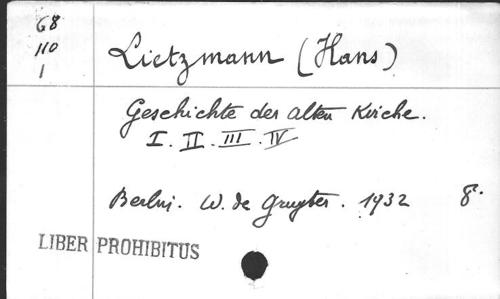 G8
110
1
Lietzmann (Hans)
Geschichte der alten Kirche.
I. II. III. IV
Berlin. W. de Gruyter. 1932 8°.
LIBER PROHIBITUS